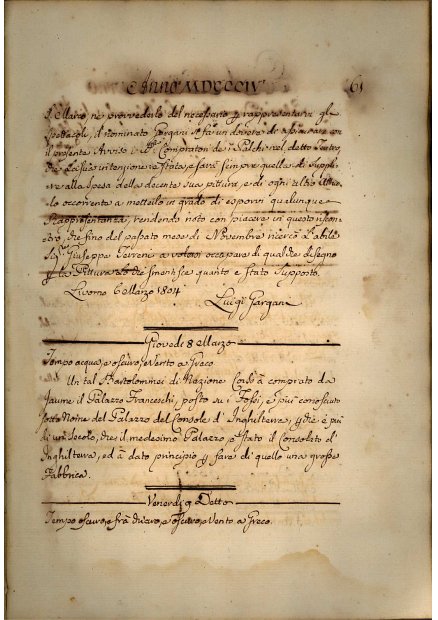 Anno MDCCCIV
61
S. Marco nè provvederlo del necessario p rappresentarvi gli
Spettacoli, il nominato Gargani si fa un dovere di assicurare con
il presente Avviso i Compratori de i Palchi nel detto Teatro,
che la sua intenzione è stata, e sarà sempre quella di supplire
alla spesa della decente sua pittura, e di ogni altro
occorrente a metterlo in grado di esporvi qualunque
Rappresentanza, rendendo noto con piacere in questo
che fino del passato mese di Novembre ricercò l'abile
Sig. Giuseppe Terreni a volersi occupare di qualche disegno
p la Pittura, lo che smentisce quanto è stato supposto.
Livorno 6 Marzo 1804
Luigi Gargani
Giovedi 8 Marzo
Tempo acqua, e oscuro, e Vento a Greco
Un tal Bartolommei di Nazione Corso à comprato da
Jaume il Palazzo Franceschi, posto su i Fossi, e piu conosciuto
sotto Nome del Palazzo del Console d'Inghilterra, p che è più
di un Secolo, che il medesimo Palazzo è stato il Consolato d'
Inghilterra, ed à dato principio p fare di quello una grossa
Fabbrica.
Venerdi 9 Detto
Tempo oscuro, e frà chiaro, e oscuro, e Vento a Greco.